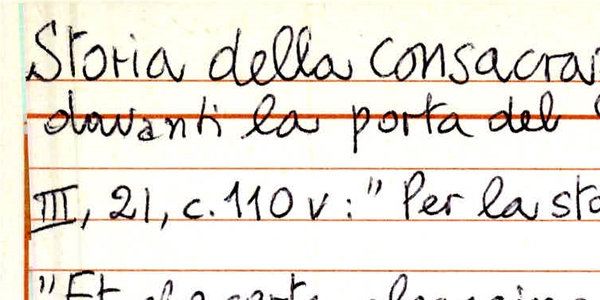 Storia della consacra
davanti la porta del
III, 21, c. 110 v : " Per la sto
"Et